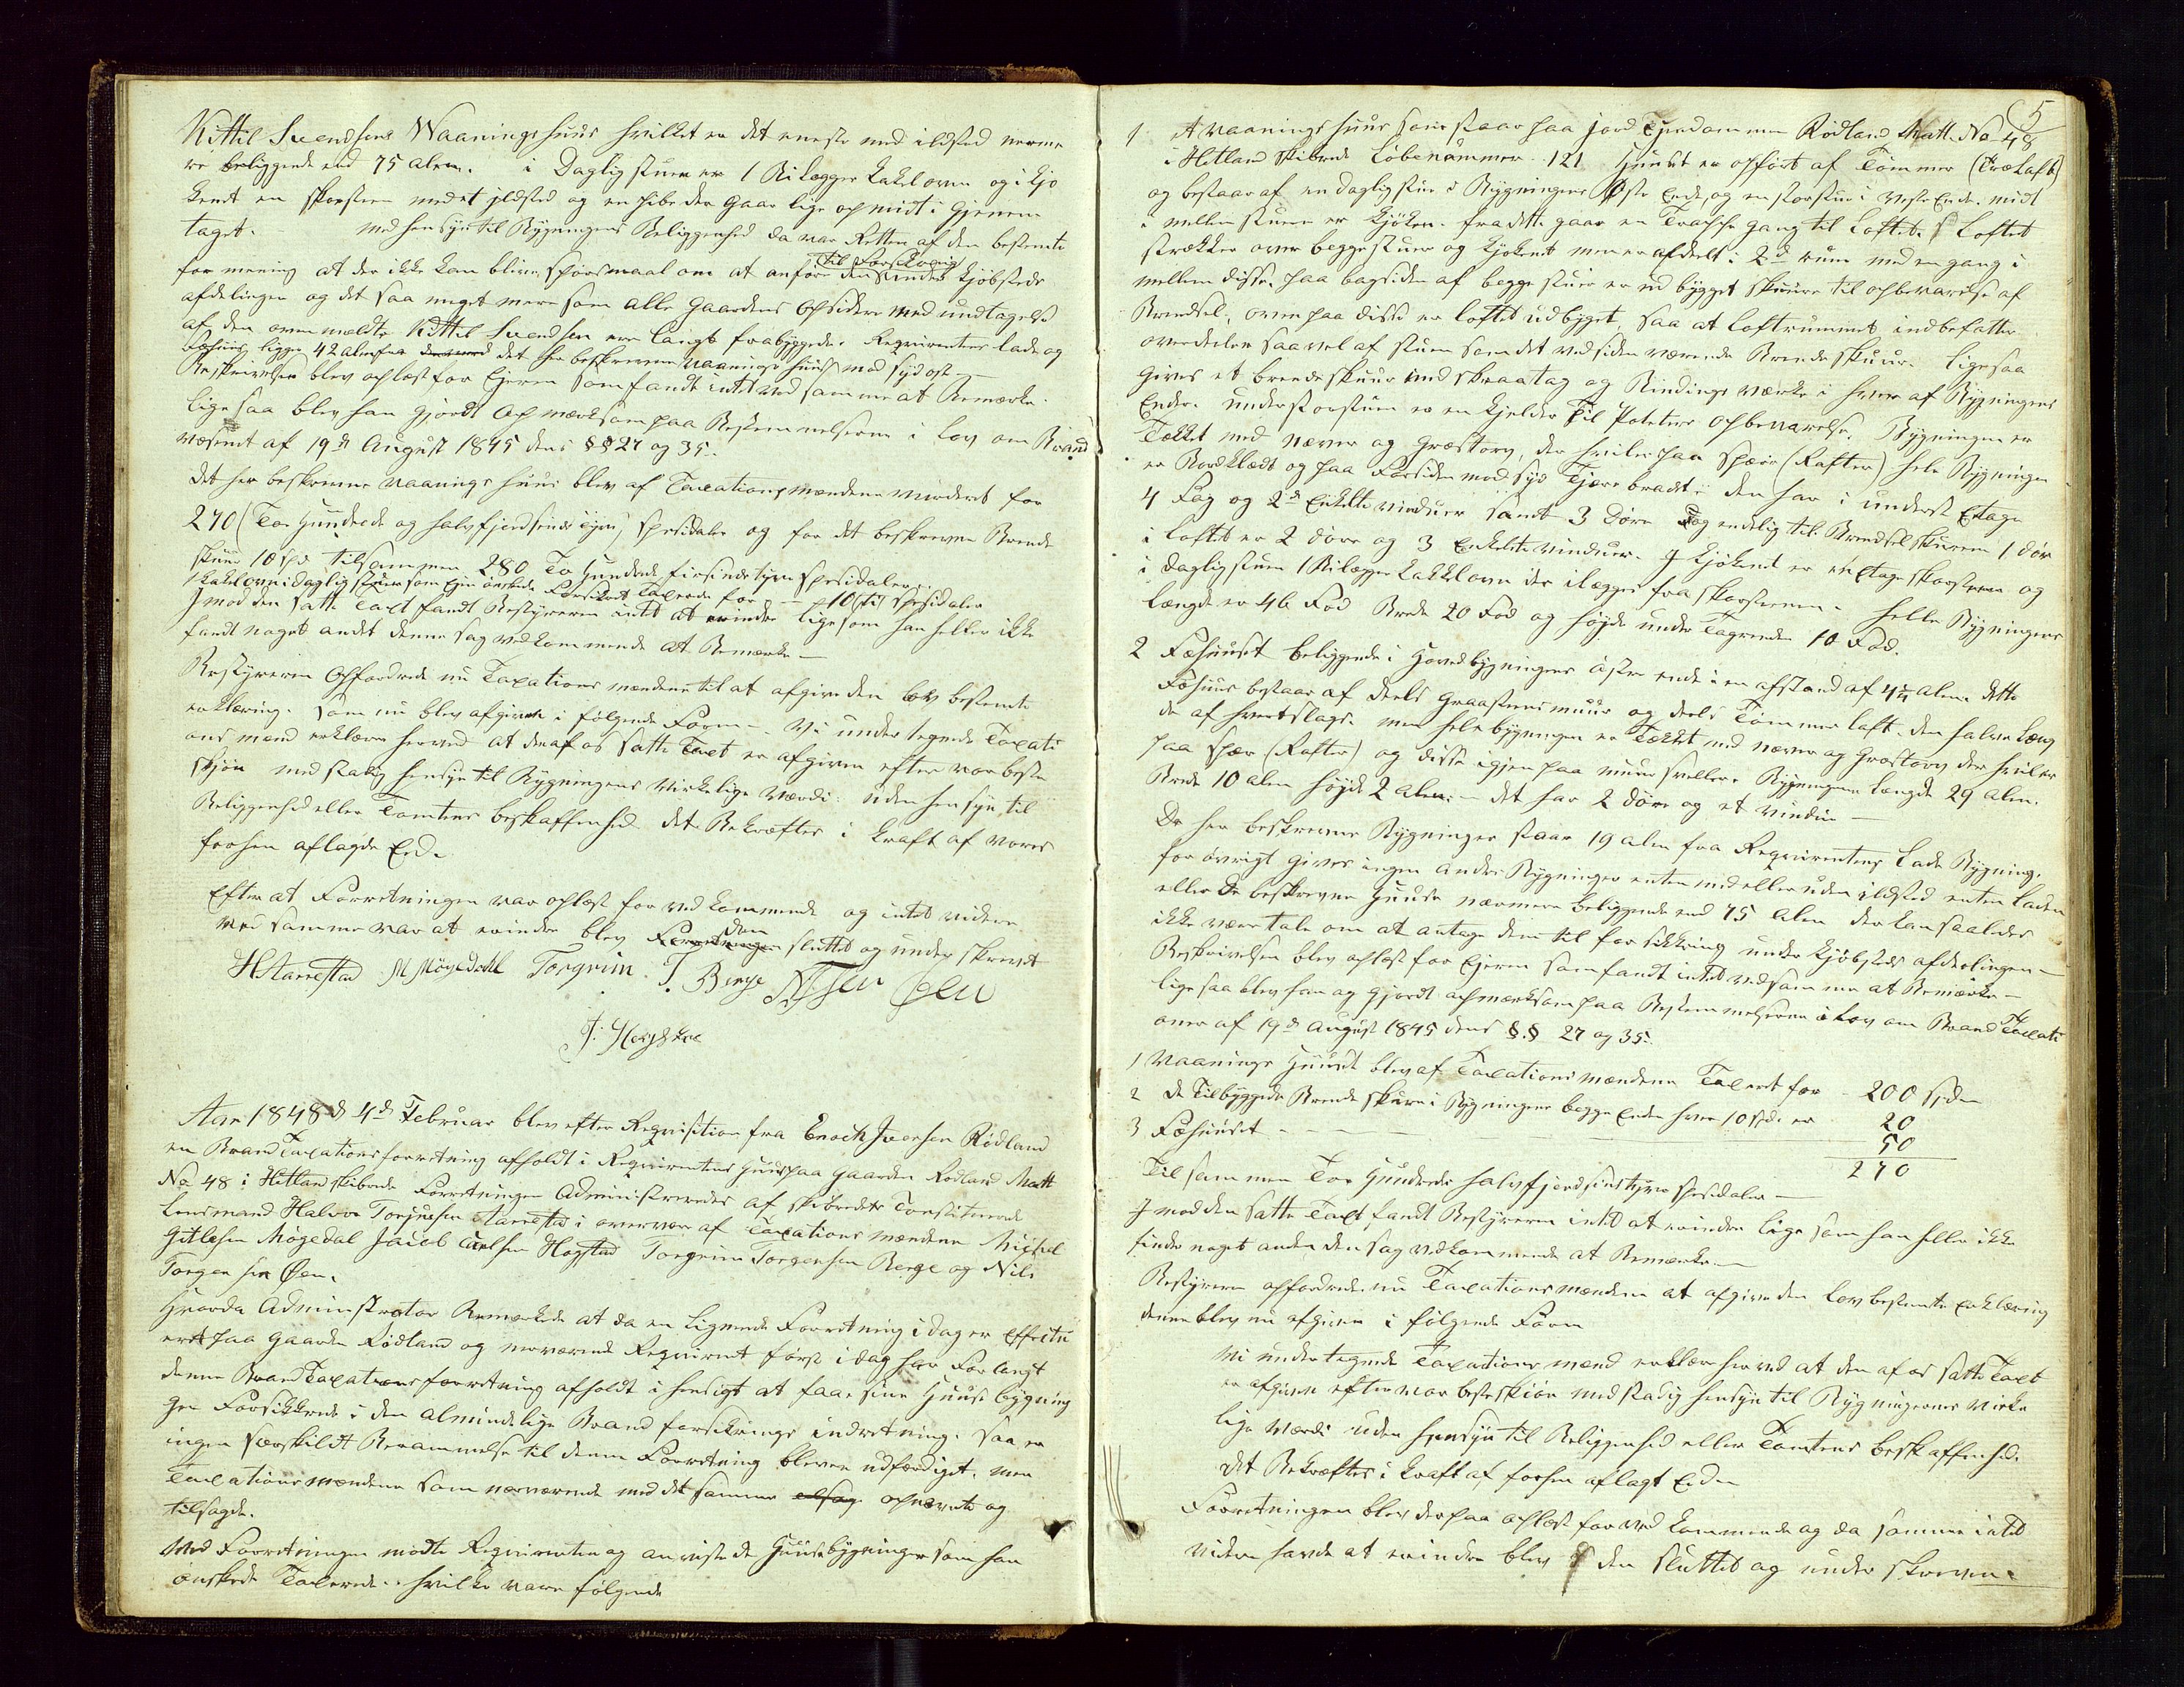 Kittil Svendsens Vaaningshuus hvilket er det eneste med ildsted nerme
re beliggende end 75 Alen. i Dagligstuen er 1 Bilegger Kakelovn og i Kjø
kenet en skorsteen med et ildsted og en pibe der gaar lige op midt i Gjennem
taget. Med hensyn til Bygningens Beliggenhed da var Retten af den bestemte
formening at der ikke kan blive spørsmaal om at anføre den til Forsikring under Kjøbsteds
afdelingen og det saa meget mere som alle Gaardens Opsidere med undtagelse
af den ommældte Kittil Svendsen ere langt frabyggede. Reqvirentens lade og
Fæhuus ligger 42 Alen fra det her beskrevne Vaaningshuus mod sydost
Beskrivelsen blev oplæst for Ejeren som fandt intet ved samme at Bemerke.
ligesaa blev han gjordt Opmerksom paa Bestemmelserne i Lov om Brand
væsenet af 19de August 1845 dens §§ 27 og 35.
det her beskrevne Vaaningshuus blev af Taxationsmændene Vurderet for
270 (To Hundrede og halvfjerdsindstyve) spesidaler og for det beskrevne Brende
skuur 10 spd tilsammen 280 To Hundrede firsindstyve spesidaler.
1 Kakelovn i dagligstuen som Ejeren ønskede Forsikret Taxerede for — 10 (ti) spesidaler
Imod den satte Taxt fandt Bestyreren intet at erindre ligesom han heller ikke
fandt noget andet denne sag vedkommende at Bemærke —
Bestyreren Opfordrede nu Taxationsmændene til at afgive den lov bestemte
erklæring. som nu blev afgiven i følgende Form — Vi under tegnede Taxati
onsmænd erklære herved at den af os satte Taxt er afgiven efter vor beste
skjøn med stadig hensyn til Bygningens Virkelige Værdi. uden hensyn til
Beliggenhed eller Tomtens beskaffenhed. det Bekræftes i kraft af vores
forhen aflagde Eed.
Efter at Forretningen var oplæst for vedkommende og intet videre
ved samme var at erindre blev den sluttet og underskrevet
H Aarrestad M Mögedahl Torgrim T. Berge
Aar 1848 d 4de Februar blev efter Reqvisition fra Enoch Iversen Rødland
en Brand Taxationsforretning afholdt i Reqvirentens Huus paa Gaarden Rødland Matt
No 48 i Hitland skibrede Forretningen Administreredes af skibredets Constituerede
Lensmand Halvor Torjussen Aarrestad i overvær af Taxationsmændene Michel
Gitlesen Mögedal Jacob Axelsen Høgstad Torgrim Torgersen Berge og Nils
Torgersen Øen.
Hvorda Administrator Bemerkede at da en lignende Forretning i dag er Effectu
eret paa Gaarden Rødland og nerværende Reqvirent først i dag har Forlangt
denne Brand Taxationsforretning afholdt i hensigt at faae sine Huusebygning
ger Forsikkrede i den almindelige Brand forsikrings indretning. saa er
ingen særskildt Berammelse til denne Forretning bleven udferdiget. men
Taxationsmændene som nerværende med det samme opnævnte og
tilsagde.
Ved Forretningen mødte Reqvirenten og anviste de Huusebygninger som han
ønskede Taxerede. hvilke vare følgende
5
1 et vaaningshuus som staar paa jord Ejendommen Rødland Matt. No 48
i Hitland skibrede Løbenummer 121 Huuset er opført af Tømmer (Trælaft)
og bestaar af en dagligstue i Bygningens Øster Ende, og en storstue i Vester Ende. midt
i mellem stuene er Kjøken. fra dette gaar en Trappe gang til Loftet. Loftet
strekker over begge stuer og Kjøkenet men er afdeelt i 2de rum med en gang i
mellem disse. paa bagsiden af begge stuer er ud bygget skuure til opbevarelse af
Brendsel, oven paa disse er loftet udbygget, saa at loftrummet indbefatter
overdelen saavel af stuen som det ved siden værende Brendeskuur. ligesaa
gives et brendeskuur med skraatag og Bindings Værke i hver af Bygningens
Ender. under storstuen er en Kjelder til Poteters opbevarelse. Bygningen er
Tækket med næver og græstorv, der hviler paa spær (Rafter) hele Bygningen
er Bordklædt og paa Forsiden mod syd Tjærebradt den har i underste Etage
4 Fag og 2de Enkelte vinduer samt 3 Døre og endelig til Brendselskurene 1 dør
i loftet er 2 døre og 3 Enkelte vinduer. I Kjøkenet er en Etage skorsteen og
i dagligstuen 1 Bilegger Kakkelovn der ilægges fra skorsteenen. Helle Bygningens
længde er 46 Fod Brede 20 Fod og høyde under Tagrenden 10 Fod.
2 Fæhuuset beliggende i Hovedbygningens østre ende i en afstand af 4¼ Alen. dette
Fæhuus bestaar af deels Graasteensmuur og deels Tømmer laft. den halve Læng
de af hvert slags. men hele bygningen er Tækket med næver og Græstorv der hviler
paa spær (Rafter) og disse igjen paa muursveller. Bygningens længde 29 Alen.
Brede 10 Alen høyde 2 Alen. — det har 2 døre og et vindue —
De her beskrevne Bygninger staar 19 alen fra Reqvirentens Lade Bygning.
for øvrigt gives ingen andre Bygninger enten med eller uden ildsted enten laden
eller de beskrevne Huuse nærmere beliggende end 75 Alen der kan saaledes
ikke være tale om at antage dem til forsikkring under Kjøbsteds afdelingen —
Beskrivelsen blev oplæst for Ejeren som fandt intet ved samme at Bemærke —
ligesaa blev han og gjordt opmærksom paa Bestemmelserne i Lov om Brand Taxati
oner af 19de August 1845 dens §.§ 27 og 35.
1 Vaanings Huuset blev af Taxationsmændene Taxeret for 200 spdlr
2 de Tilbyggede Brendeskure i Bygningens begge Ender hver 10 spd. er 20
3 Fæhuuset — 50
270
Tilsammen Too Hundrede halvfjerdsinstyve spesidaler —
Imod den satte Taxt fandt Bestyreren intet at erindre ligesom han heller ikke
finder noget anden den sag vedkommende at Bemærke —
Bestyreren opfordrede nu Taxationsmændene at afgive den lovbestemte Erklæring
denne blev nu afgiven i følgende Form
Vi undertegnede Taxationsmænd erklære herved at den af os satte Taxt
er afgiven efter vor beste skiøn med stadig hensyn til Bygningernes Virke
lige Værdi uden hensyn til Beliggenhed eller Tomtens beskaffenhed.
det Bekræftes i kraft af forhen aflagt Eed.
Forretningen blev derpaa oplæst for vedkommende og da samme intet
videre havde at erindre blev den sluttet og underskreven.